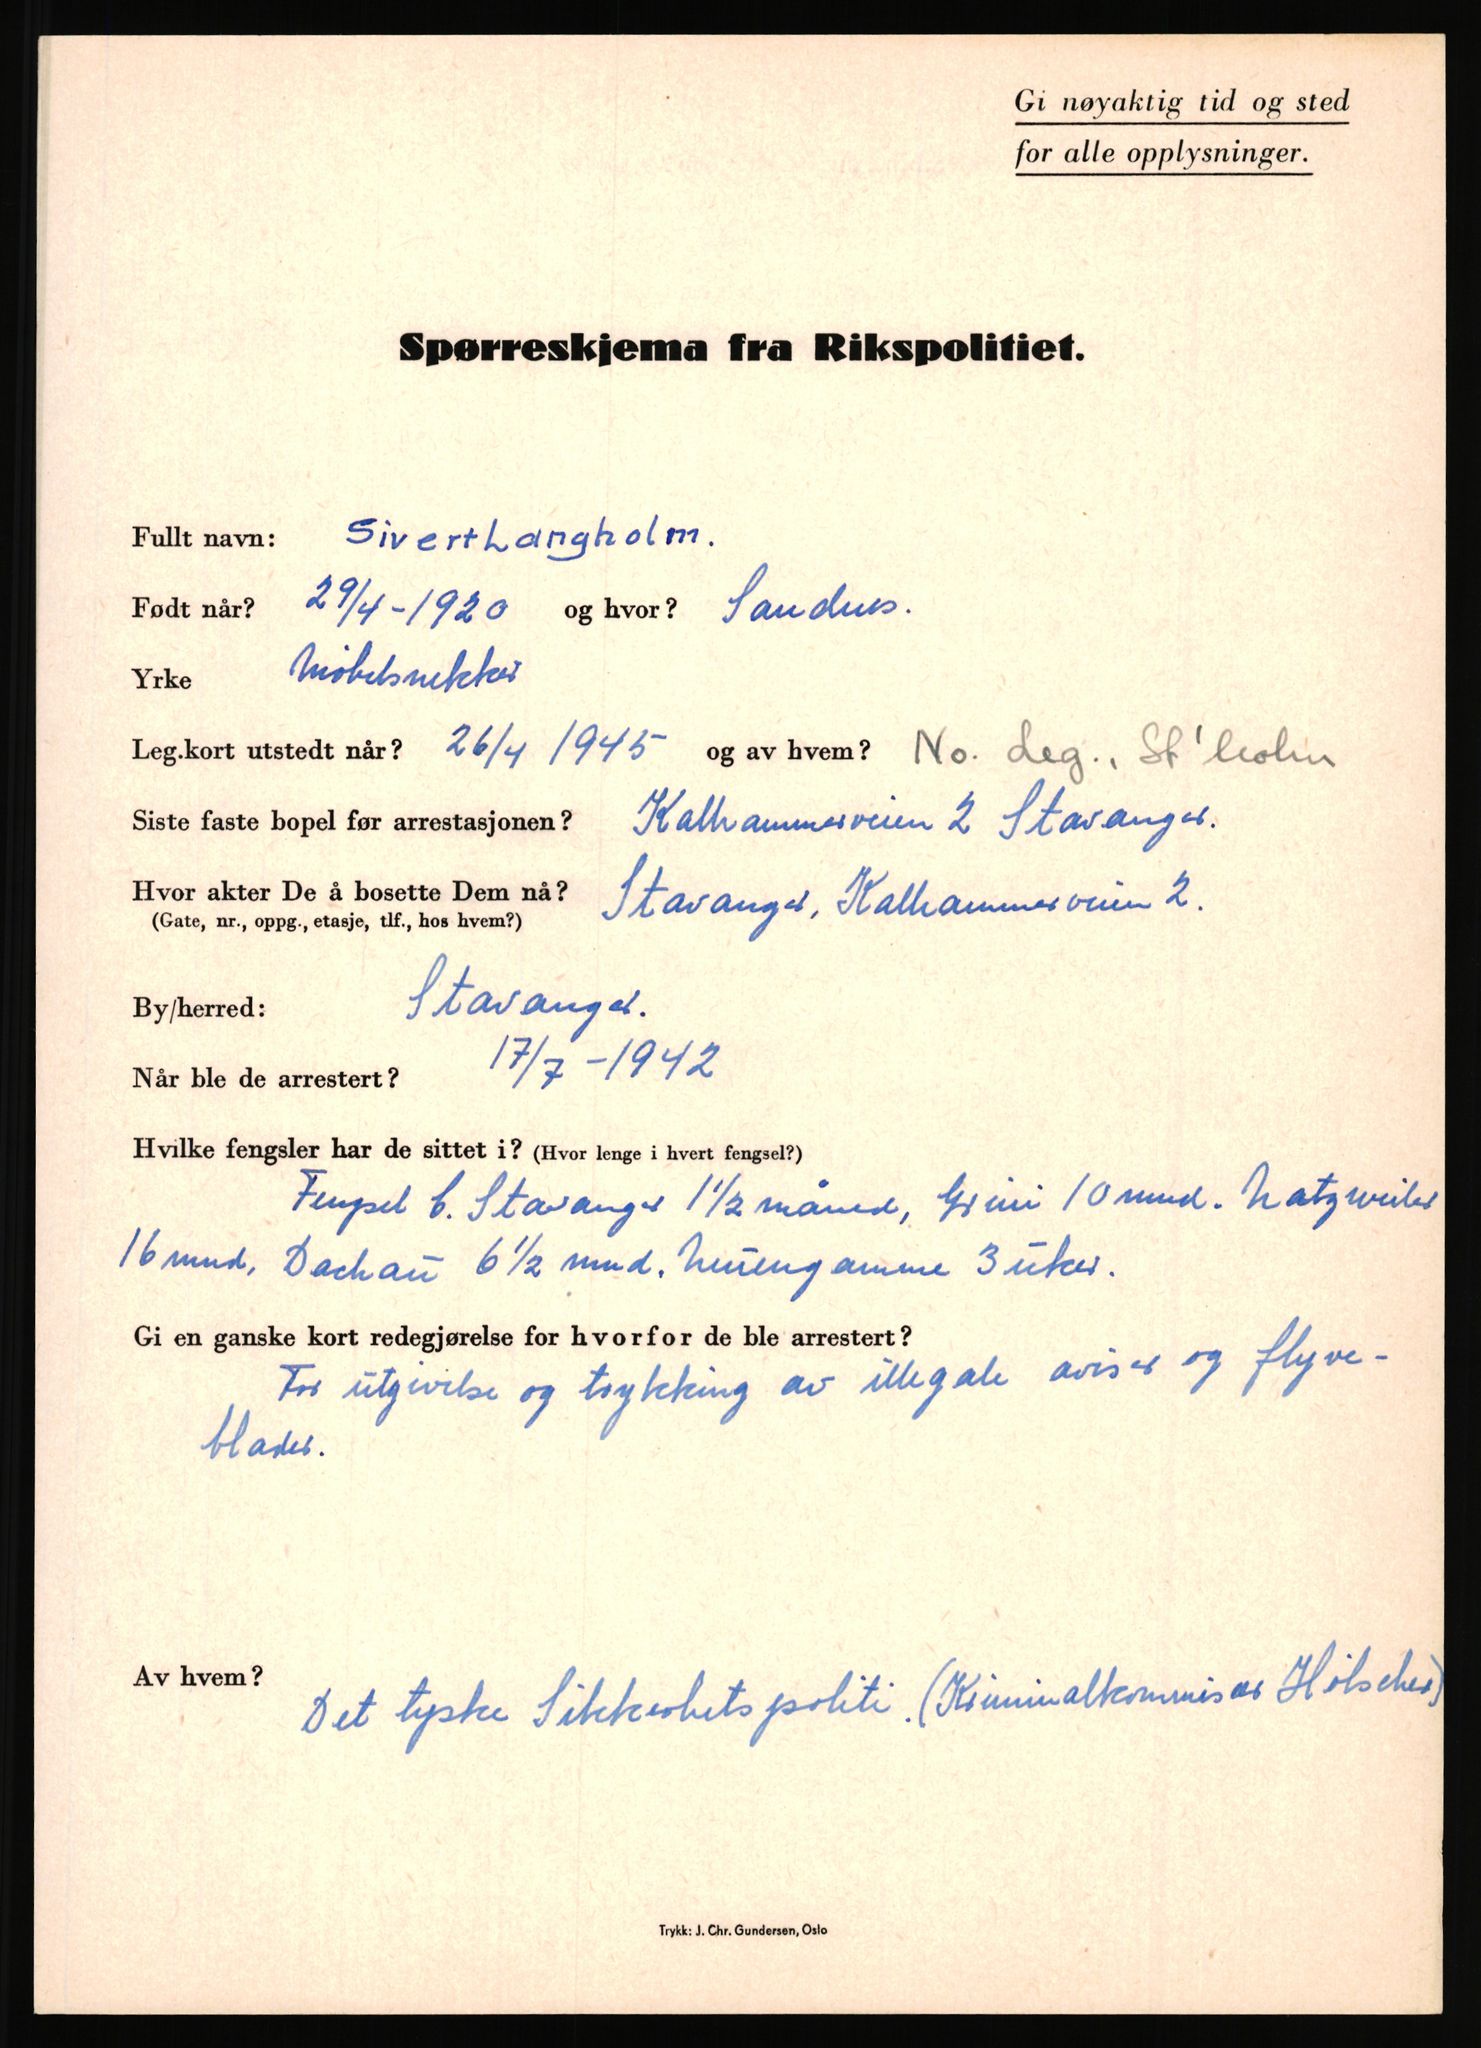 Gi nøyaktig tid og sted
for alle opplysninger.
Spørreskjema fra Rikspolitiet.
Fullt navn: Sivert Langholm.
Født når? 29/4-1920 og hvor? Sandnes.
Yrke Møbelsnekker
Leg.kort utstedt når? 26/4 1945 og av hvem? No. Leg., St'holm
Siste faste bopel før arrestasjonen? Kalhammerveien 2 Stavanger.
Hvor akter De å bosette Dem nå? Stavanger, Kalhammerveien 2.
(Gate, nr., oppg., etasje, tlf., hos hvem?)
By/herred: Stavanger.
Når ble de arrestert? 17/7-1942
Hvilke fengsler har de sittet i? (Hvor lenge i hvert fengsel?)
Fengsel b. Stavanger 1 1/2 måned, Grini 10 mnd. Natzweiler
16 mnd, Dachau 6 1/2 mnd. Neuengamme 3 uker.
Gi en ganske kort redegjørelse for hvorfor de ble arrestert?
For utgivelse og trykking av illegale aviser og flyve-
blader.
Av hvem? Det tyske Sikkerhetspoliti. (Kriminalkommisær Hölscher)
Trykk: J. Chr. Gundersen, Oslo